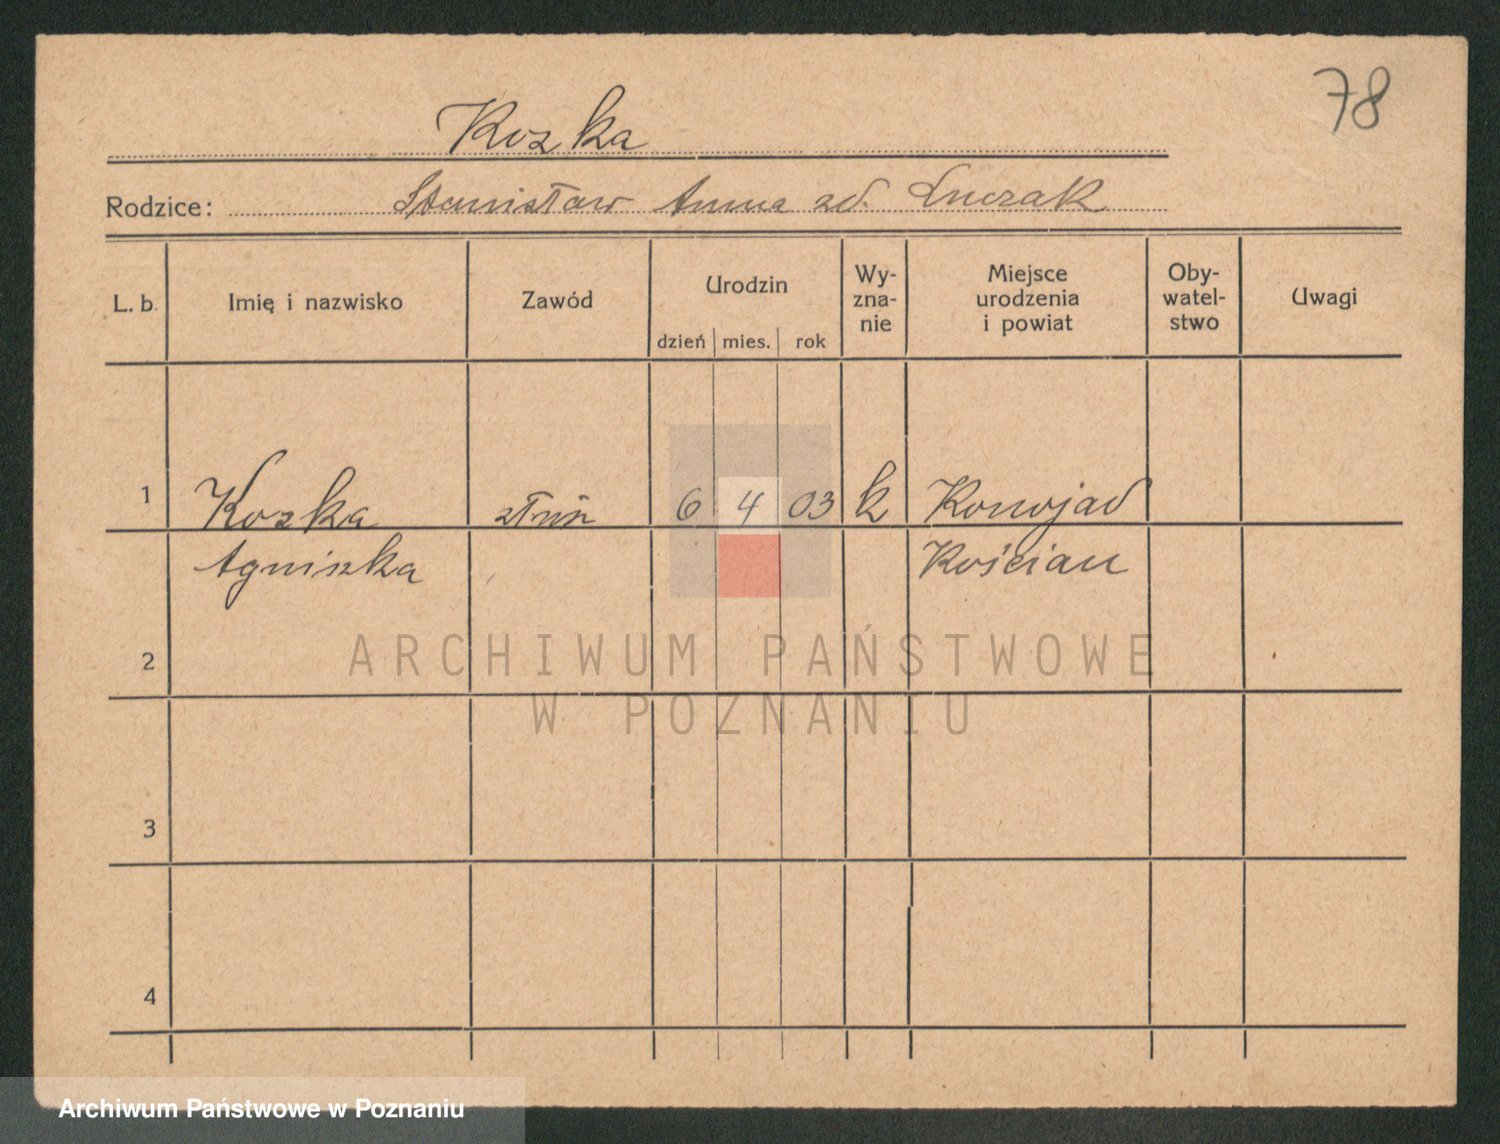 78
Kozka
Rodzice: Stanisław Anna zd. Luczak
L. b. Imię i nazwisko Zawód Urodzin dzień mies. rok Wy-zna-nie Miejsce urodzenia i powiat Oby-watel-stwo Uwagi
1 Kozka 6 4 03 k Konojad
Agniszka Kościan
2
3
4
ARCHIWUM PAŃSTWOWE
W POZNANIU
Archiwum Państwowe w Poznaniu